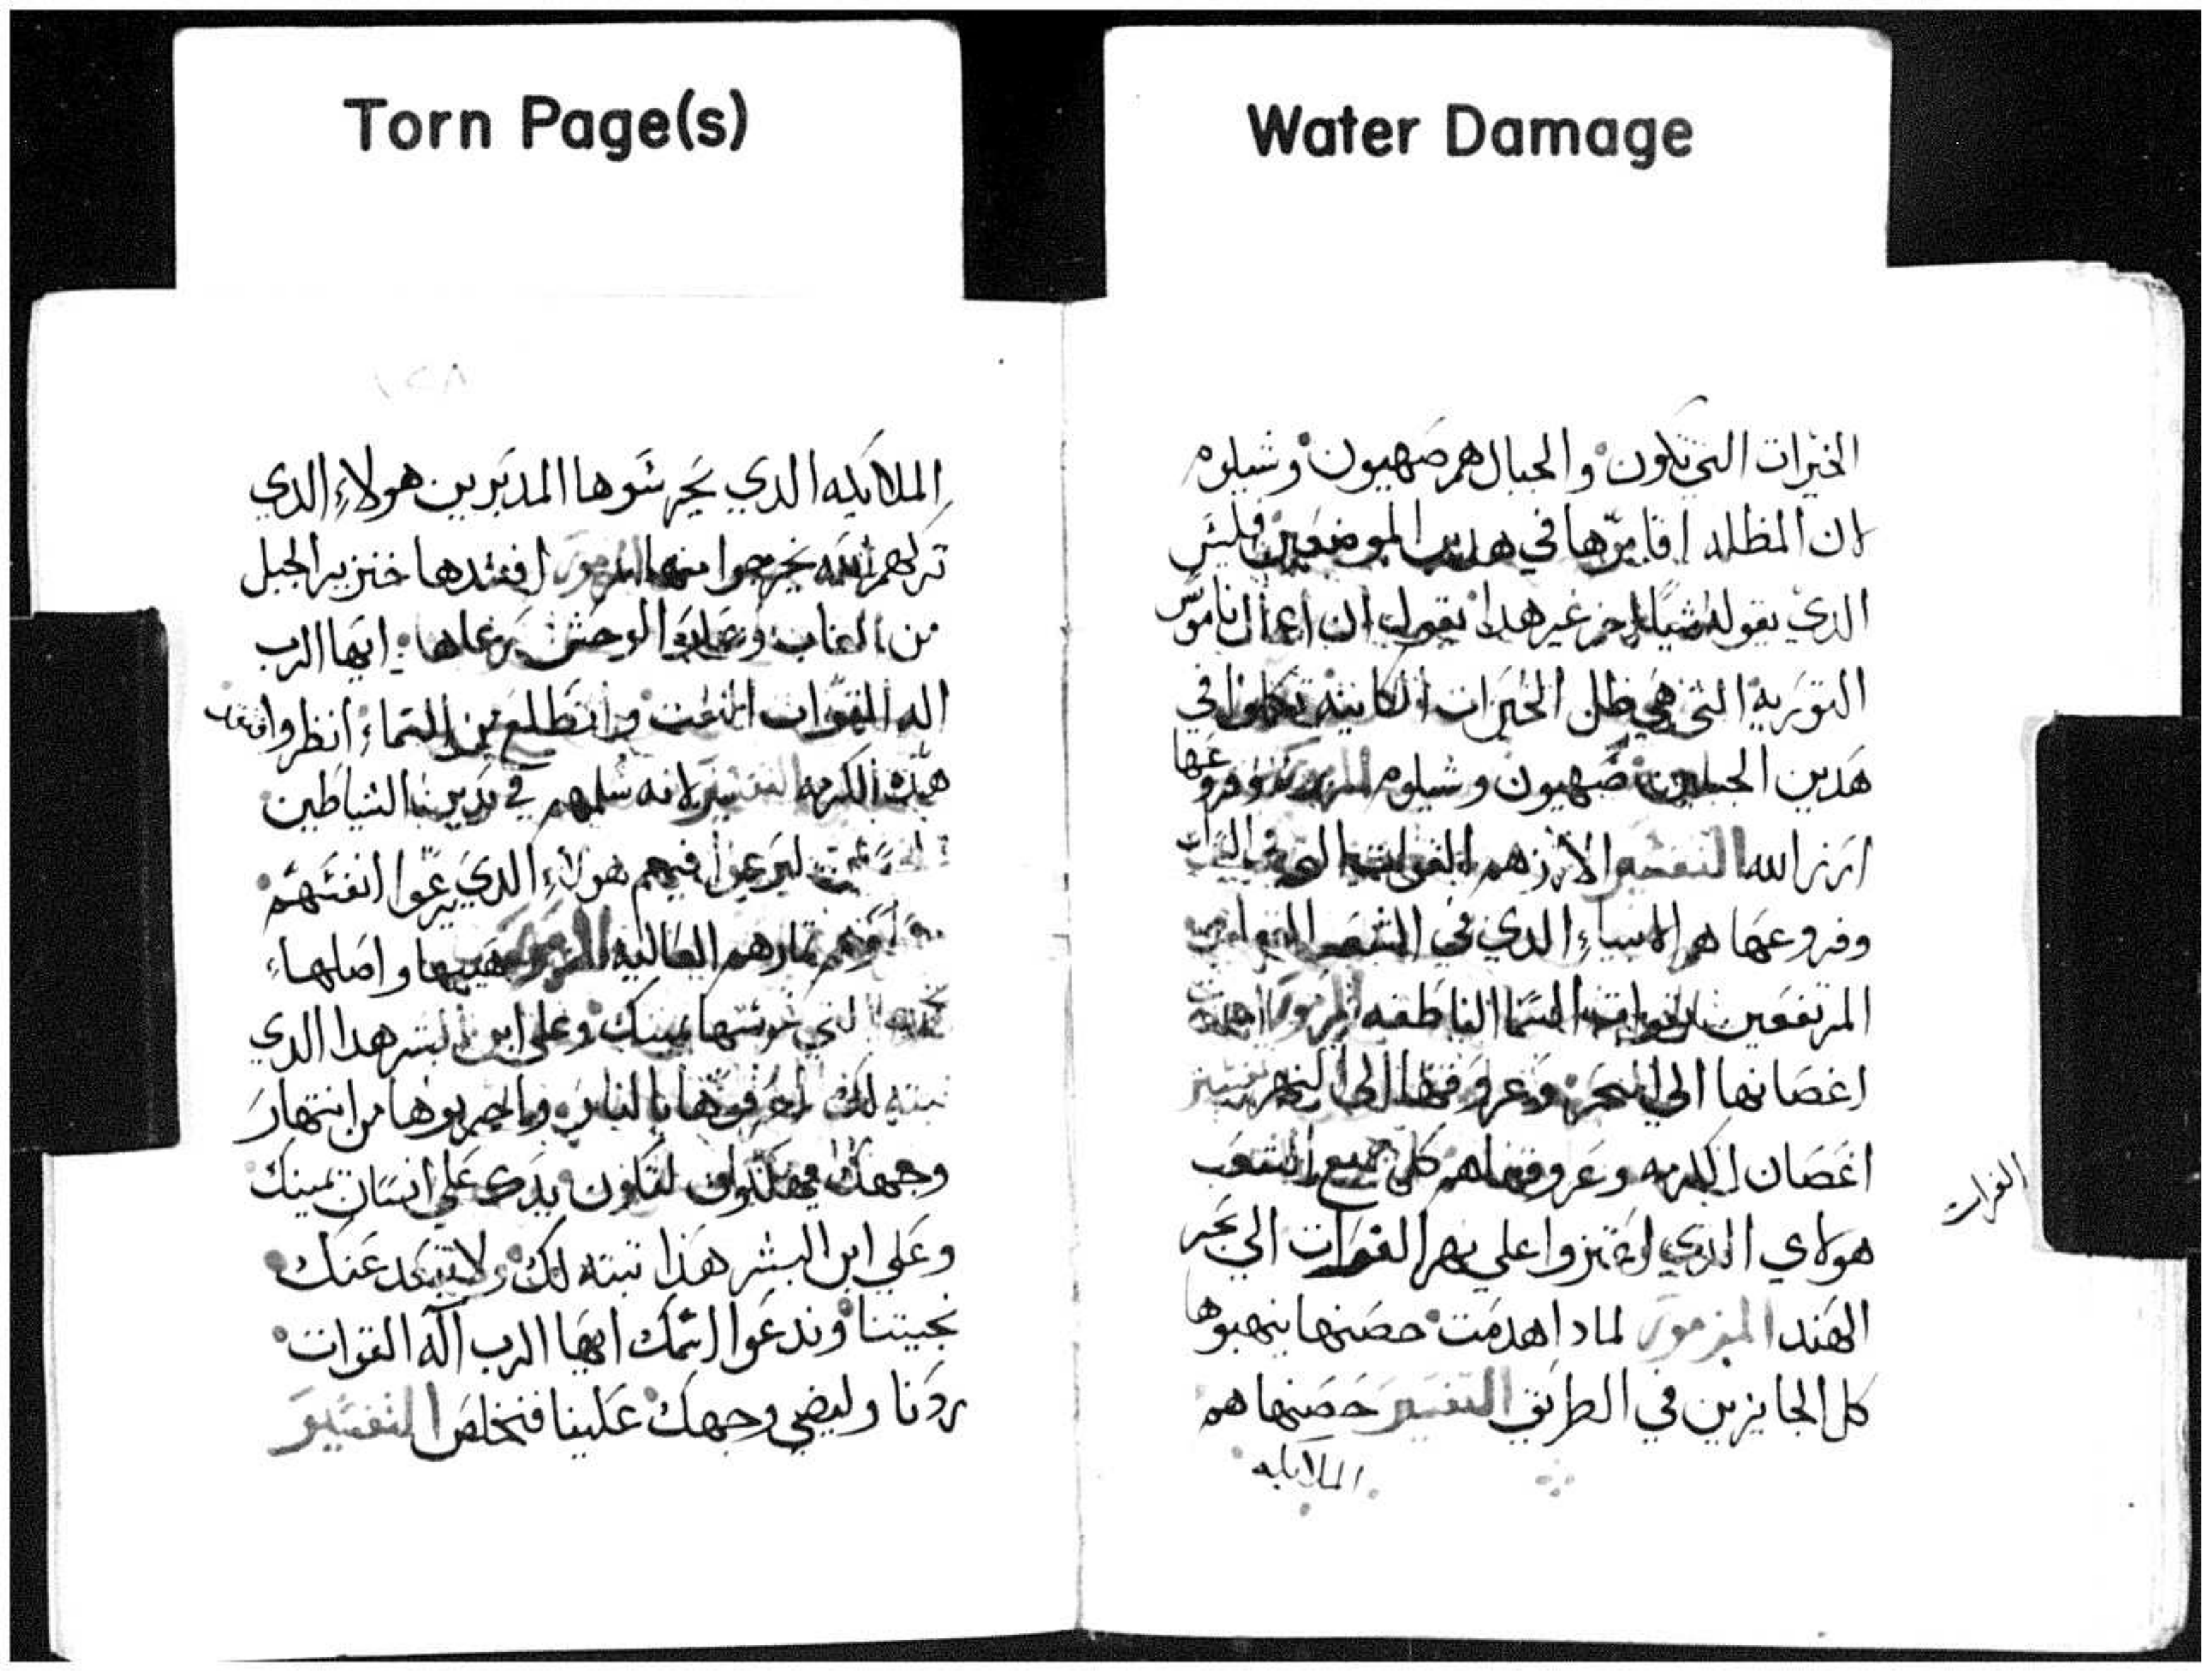 Torn Page(s)
Water Damage
الخيرات التي تكون والجبال هم صهيون وشيلوم
لان المظله اقامرها في هدين الموضعين فليس
الذي يقوله شيا اخر غير هدا يقول ان اعمال ناموس
التوريه التي هي ظل الخيرات الكاينه تكلوا في
هدين الجبلين صهيون وشيلوم المزمور وفروعها
ارز الله التفسير الارز هم القوات التي في
وفروعها هم الانبياء الدي في الشعب
المرتفعين السما الناطقه المزمور امتدت
اغصانها الى البحر وعروقها الى النهر تفسير
اغصان الكرمه وعروقها هم كل جميع الشعب
هولاي الدي اعتزوا على نهر الفرات الي بحر
الفرات
الهند المزمور لمادا هدمت حصنها ينهبوها
كل الجايزين في الطريق التفسير حصنها هم
الملايكه
١٢٨
الملايكه الدي يحرسوها المدبرين هولاء الدي
تركهم الله يخرجوا منها المزمور افسدها خنزير الجبل
من الغاب وحمار الوحش رعاها ايها الرب
اله القوات التفت واتطلع من السماء انظر وافتقد
هده الكرمه التفسير لانه سلمهم في يدين الشياطين
ليرعوا فيهم هولاء الدي يرعوا انفسهم
تمارهم العاليه المزمور هييها واصلها
التي غرستها يمينك وعلى ابن البشر هدا الدي
تبته لك احرقوها بالنار واخربوها من انتهار
وجهك يهلكون لتكون يدك علي انسان يمينك
وعلي ابن البشر هذا تبته لك ولا نبتعد عنك
تحييننا وندعوا اسمك ايها الرب اله القوات
ردنا وليضي وجهك علينا فنخلص التفسير